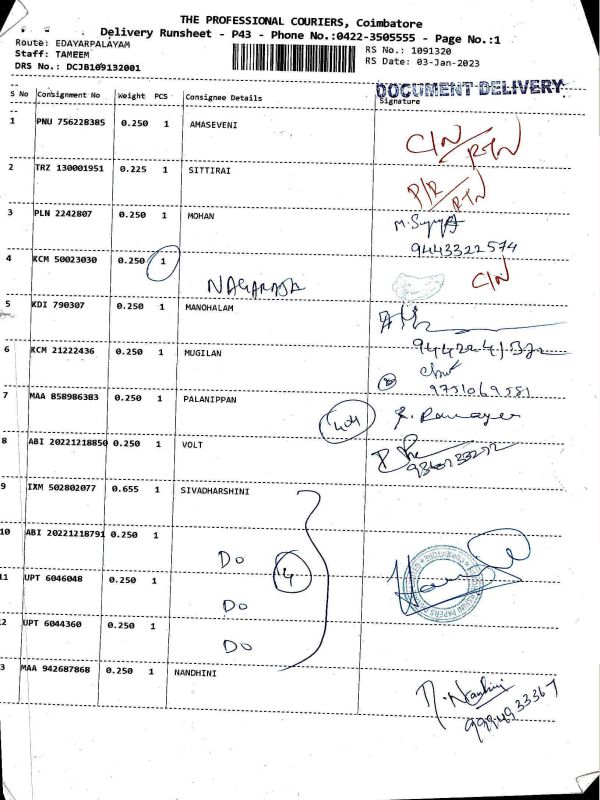 THE PROFESSIONAL COURIERS, Coimbatore
Delivery Runsheet - P43 - Phone No.:0422-3505555 - Page No.:1
Route: EDAYARPALAYAM
RS No.: 1091320
Staff: TAMEEM
RS Date: 03-Jan-2023
DRS No.: DCJB109132001
DOCUMENT DELIVERY
S No Consignment No Weight PCS Consignee Details Signature
1 PNU 756228385 0.250 1 AMASEVENI C/N RTN
2 TRZ 130001951 0.225 1 SITTIRAI P/R RTN
3 PLN 2242807 0.250 1 MOHAN
9443322574
4 KCM 50023030 0.250 1 C/N
NAGARAJA
5 KDI 790307 0.250 1 MANOHALAM
6 KCM 21222436 0.250 1 MUGILAN
9751069581
7 MAA 858986383 0.250 1 PALANIPPAN 404
8 ABI 20221218850 0.250 1 VOLT
9 IXM 502802077 0.655 1 SIVADHARSHINI
10 ABI 20221218791 0.250 1
Do 4
11 UPT 6046048 0.250 1
Do
2 UPT 6044360 0.250 1
Do
3 MAA 942687868 0.250 1 NANDHINI
N. Nandhini
9994933367